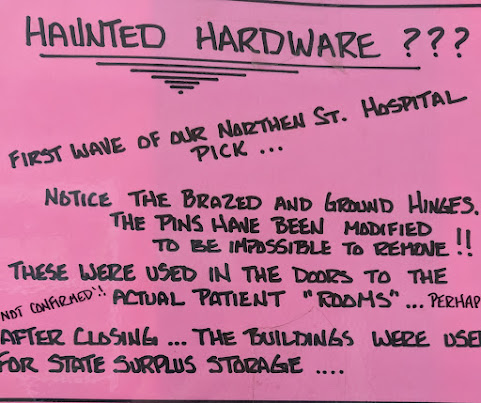 HAUNTED HARDWARE ???
FIRST WAVE OF OUR NORTHEN ST. HOSPITAL
PICK ...
NOTICE THE BRAZED AND GROUND HINGES.
THE PINS HAVE BEEN MODIFIED
TO BE IMPOSSIBLE TO REMOVE !!
THESE WERE USED IN THE DOORS TO THE
NOT CONFIRMED !! ACTUAL PATIENT "ROOMS" ... PERHAP
AFTER CLOSING ... THE BUILDINGS WERE USE
FOR STATE SURPLUS STORAGE ....